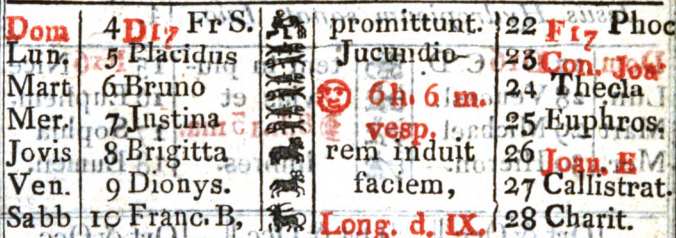 Dom 4 D 17 Fr S. promittunt. 22 F 17 Phoc
Lun. 5 Placidus Jucundio- 23 Con. Joa-
Mart 6 Bruno 6 h. 6 m. 24 Thecla
Mer. 7 Justina vesp. 25 Euphros.
Jovis 8 Brigitta rem induit 26 Joan. E
Ven. 9 Dionys. faciem, 27 Callistrat.
Sabb 10 Franc. B, Long. d. IX. 28 Charit.